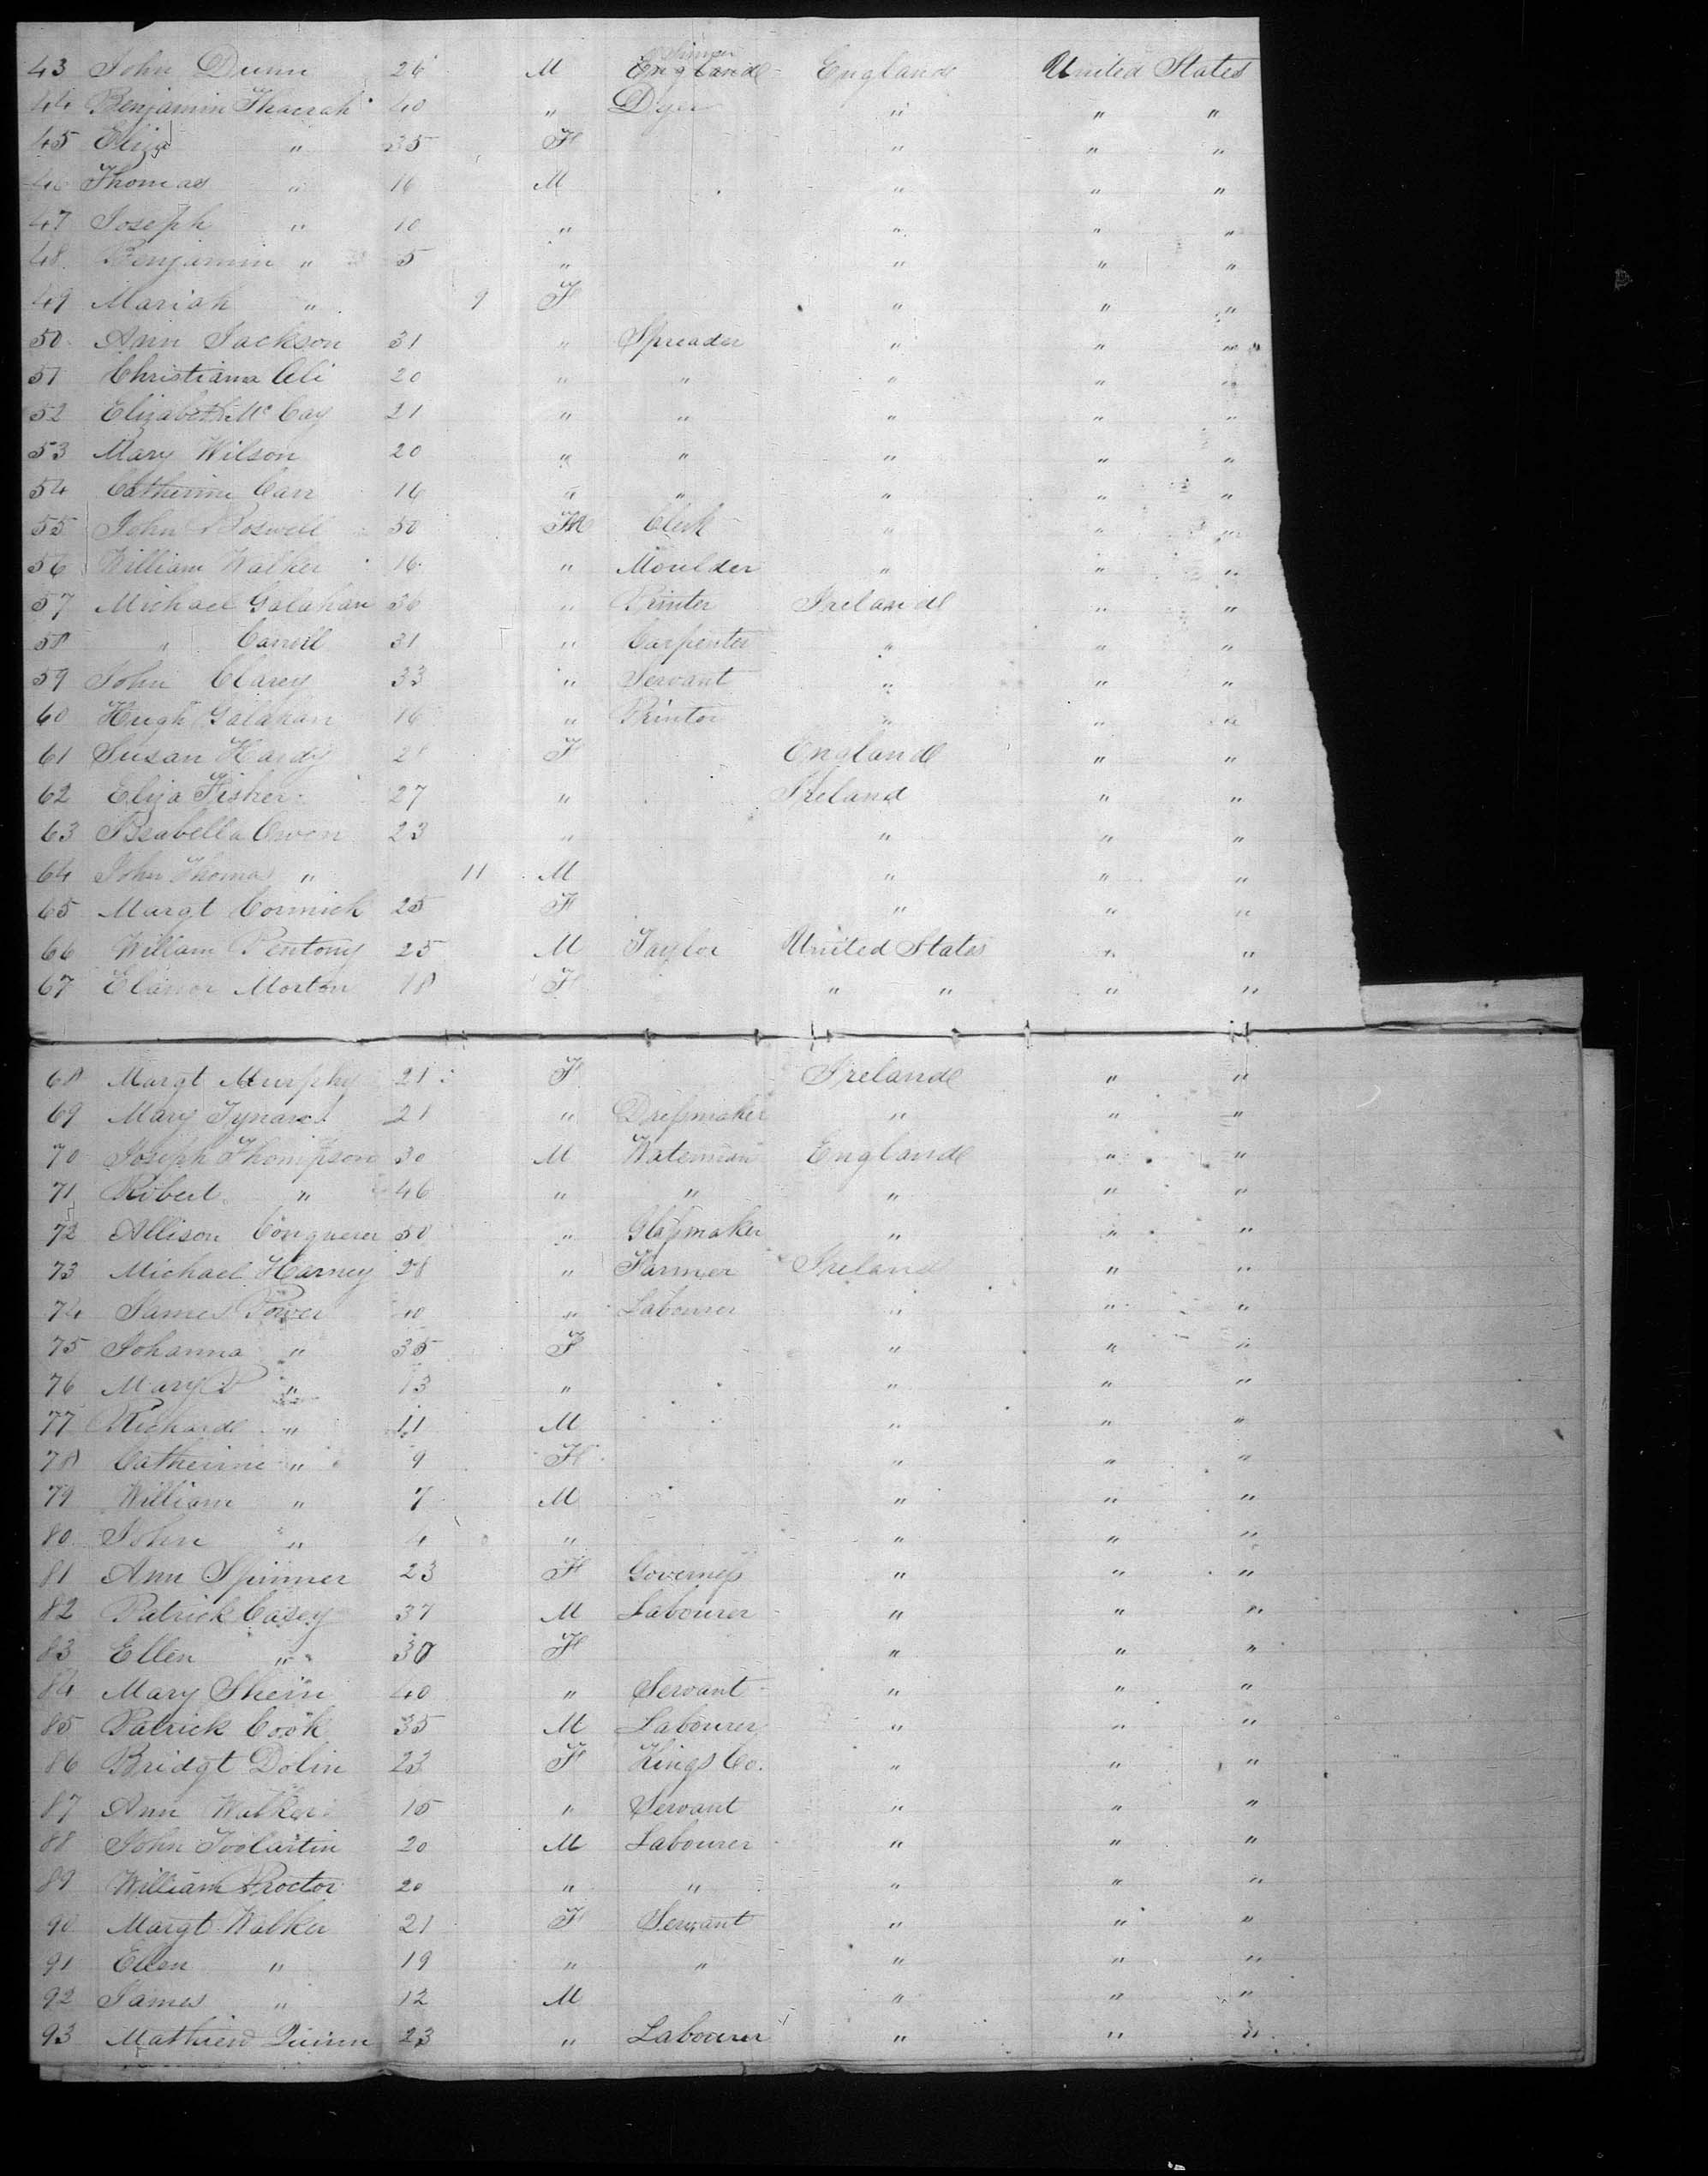 43 John Dunn 26 M England England United States
44 Benjamin Thacrah 40 " Dyer " " "
45 Eliza " 35 F " " "
46 Thomas " 16 M " " "
47 Joseph " 10 " " " "
48 Benjamin " 5 " " " "
49 Mariah " 9 F " " "
50 Ann Jackson 31 " Spreader " " "
51 Christiana 20 " " " " "
52 Elizabeth Mc Cay 21 " " " " "
53 Mary Wilson 20 " " " " "
54 Catherine Carr 16 " " " " "
55 John Boswell 50 M Clerk " " "
56 William Walker 16 " Moulder " " "
57 Michael Galahan 30 " Printer Ireland " "
58 " Carroll 31 " Carpenter " " "
59 John Clarey 33 " Servant " " "
60 Hugh Galahan 16 " Printer " " "
61 Susan Hardy 28 F England " "
62 Eliza Fisher 27 " Ireland " "
63 Isabella Owen 23 " " " "
64 John Thomas " 11 M " " "
65 Margt Cormick 25 F " " "
66 William Pentony 25 M Taylor United States " "
67 Elanor Morton 18 F " " " "
68 Margt Murphy 21 F Ireland " "
69 Mary Tynan 21 " Dressmaker " " "
70 Joseph Thompson 30 M Waterman England " "
71 Robert " 46 " " " " "
72 Allison Conquerer 50 " Glassmaker " " "
73 Michael Harney 28 " Farmer Ireland " "
74 James Power 40 " Labourer " " "
75 Johanna " 35 F " " "
76 Mary " 13 " " " "
77 Richard " 11 M " " "
78 Catherine " 9 F " " "
79 William " 7 M " " "
80 John " 4 " " " "
81 Ann Spinner 23 F Governess " " "
82 Patrick Casey 37 M Labourer " " "
83 Ellen " 30 F " " "
84 Mary Shein 40 " Servant " " "
85 Patrick Cook 35 M Labourer " " "
86 Bridgt Dolin 23 F Kings Co. " " "
87 Ann Walker 15 " Servant " " "
88 John 20 M Labourer " " "
89 William Proctor 20 " " " " "
90 Margt Walker 21 F Servant " " "
91 Ellen " 19 " " " " "
92 James " 12 M " " "
93 Mathiew Quinn 23 " Labourer " " "